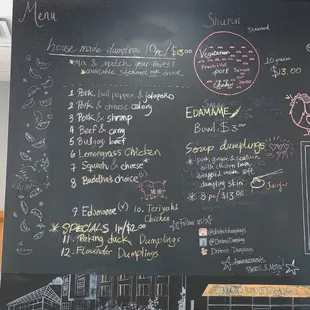 Menu
house made dumplins 10pc/$13.00
*mix & match your faves!
*available steamed or fried
1 Pork, bull pepper & jalapeño
2 Pork & chinese celery
3 Pork & shrimp
4 Beef & curry
5 Bulgogi beef
6 Lemongrass Chicken
7 Squash & cheese
8 Buddha's choice
9. Edamame (v)
10. Teriyaki
Chicken
*SPECIALS 1pc/$2.00
11. Peking duck Dumplings
12. Flounder Dumplings
Shumai
Steamed
Vegetarian
pork
Chicken
10 pieces
$13.00
EDAMAME
Bowl: $3
Soup dumplings
* pork, ginger & scallion
with chicken
wrapped inside soft
dumpling skin
* 8 pc/$13
Follow us
@districtdumplings
@DistrictDumpling
District Dumplings